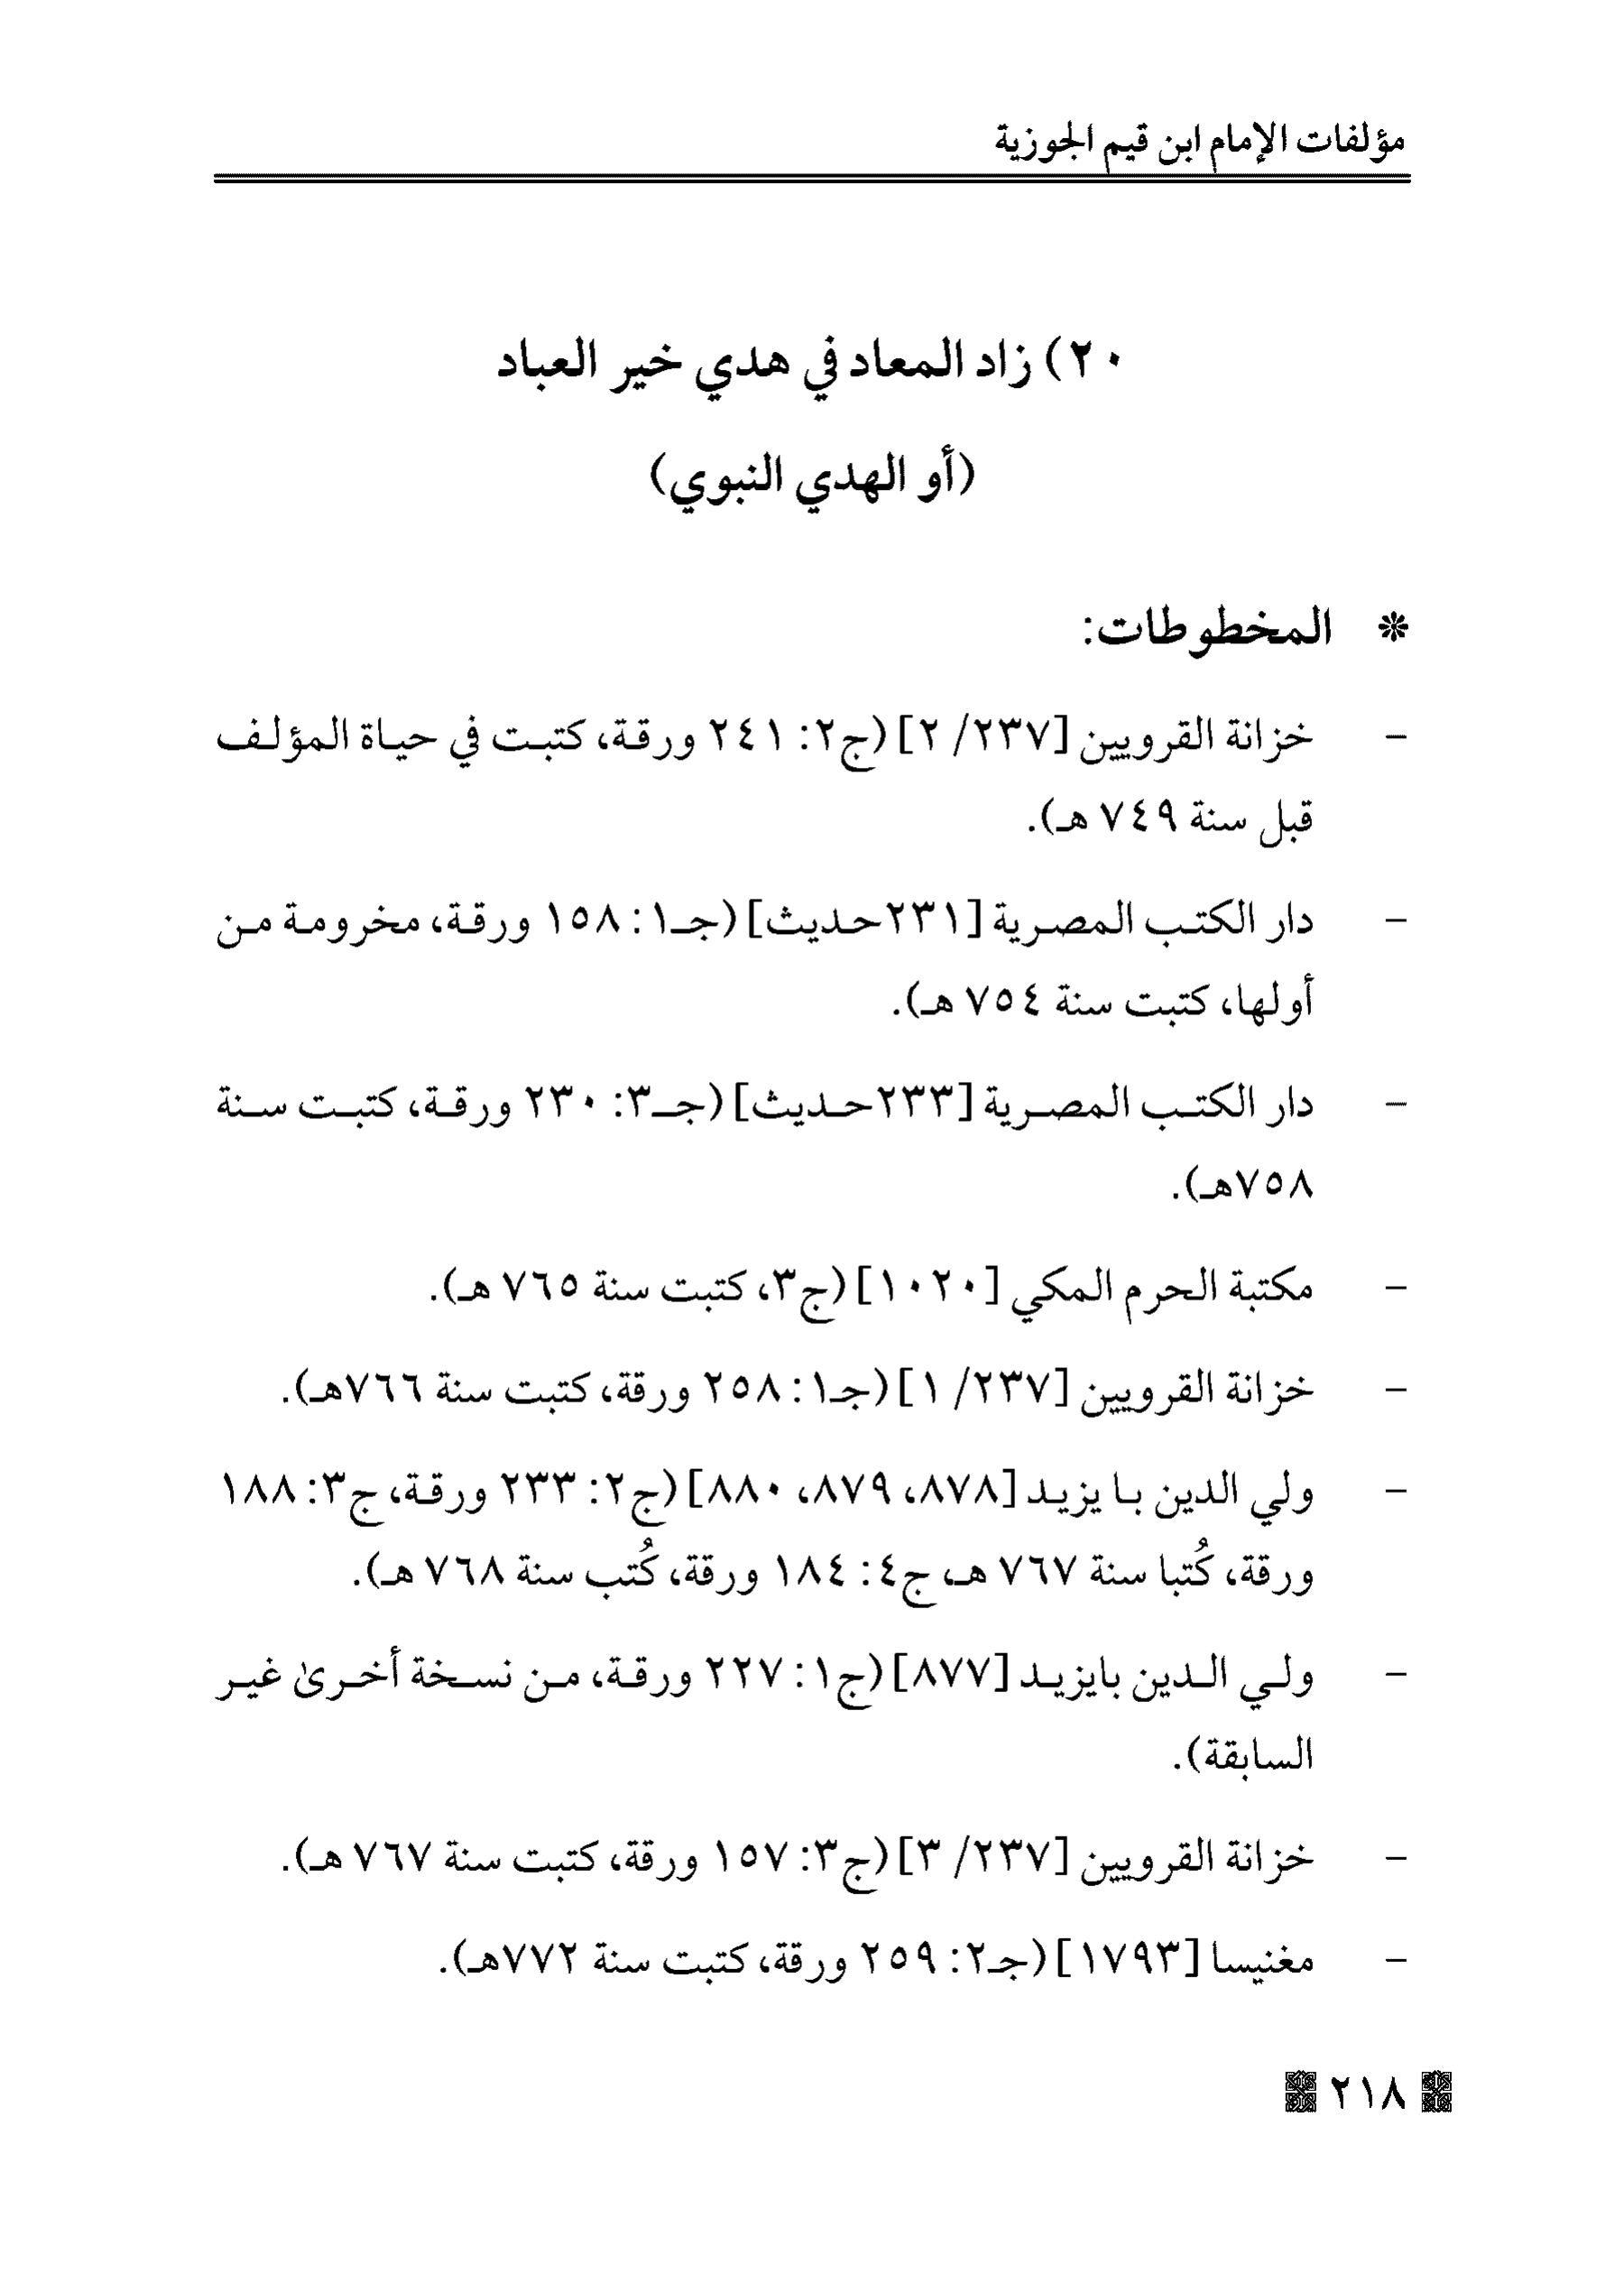 مؤلفات الإمام ابن قيم الجوزية
٢٠) زاد المعاد في هدي خير العباد
(أو الهدي النبوي)
* المخطوطات:
- خزانة القرويين [٢٣٧/ ٢] (ج٢: ٢٤١ ورقة، كتبت في حياة المؤلف
قبل سنة ٧٤٩ هـ).
- دار الكتب المصرية [٢٣١حديث] (جـ١: ١٥٨ ورقة، مخرومة من
أولها، كتبت سنة ٧٥٤ هـ).
- دار الكتب المصرية [٢٣٣حديث] (جـ٣: ٢٣٠ ورقة، كتبت سنة
٧٥٨هـ).
- مكتبة الحرم المكي [١٠٢٠] (ج٣، كتبت سنة ٧٦٥ هـ).
- خزانة القرويين [٢٣٧/ ١] (جـ١: ٢٥٨ ورقة، كتبت سنة ٧٦٦هـ).
- ولي الدين با يزيد [٨٧٨، ٨٧٩، ٨٨٠] (ج٢: ٢٣٣ ورقة، ج٣: ١٨٨
ورقة، كُتبا سنة ٧٦٧ هـ، ج٤: ١٨٤ ورقة، كُتب سنة ٧٦٨ هـ).
- ولي الدين بايزيد [٨٧٧] (ج١: ٢٢٧ ورقة، من نسخة أخرىٰ غير
السابقة).
- خزانة القرويين [٢٣٧/ ٣] (ج٣: ١٥٧ ورقة، كتبت سنة ٧٦٧ هـ).
- مغنيسا [١٧٩٣] (جـ٢: ٢٥٩ ورقة، كتبت سنة ٧٧٢هـ).
٢١٨